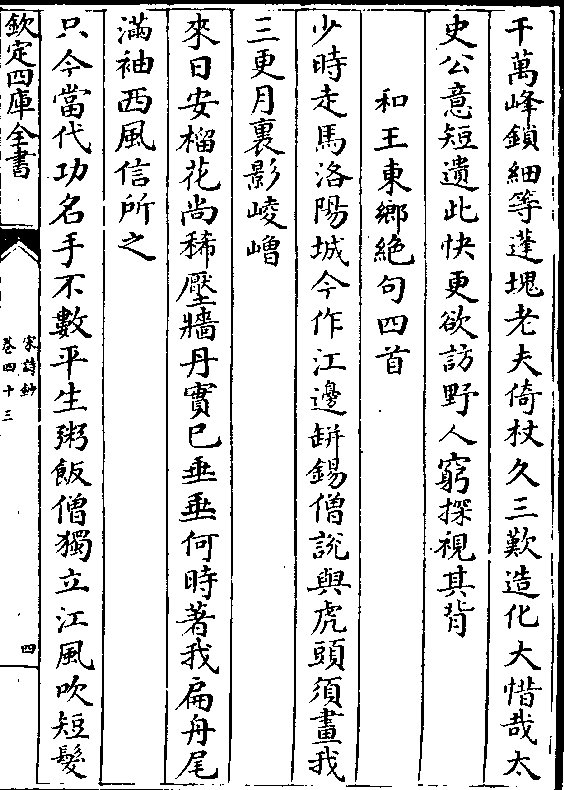 千萬峰鎖細等蓬塊老夫倚杖久三歎造化大惜哉太
史公意短遺此快更欲訪野人窮探視其背
和王東鄉絶句四首
少時走馬洛陽城今作江邊缾錫僧說與虎頭須畫我
三更月裏影崚嶒
來日安榴花尚稀壓牆丹實已垂垂何時著我扁舟尾
滿袖西風信所之
只今當代功名手不數平生粥飯僧獨立江風吹短髮
欽定四庫全書
宋詩鈔
卷四十三
四